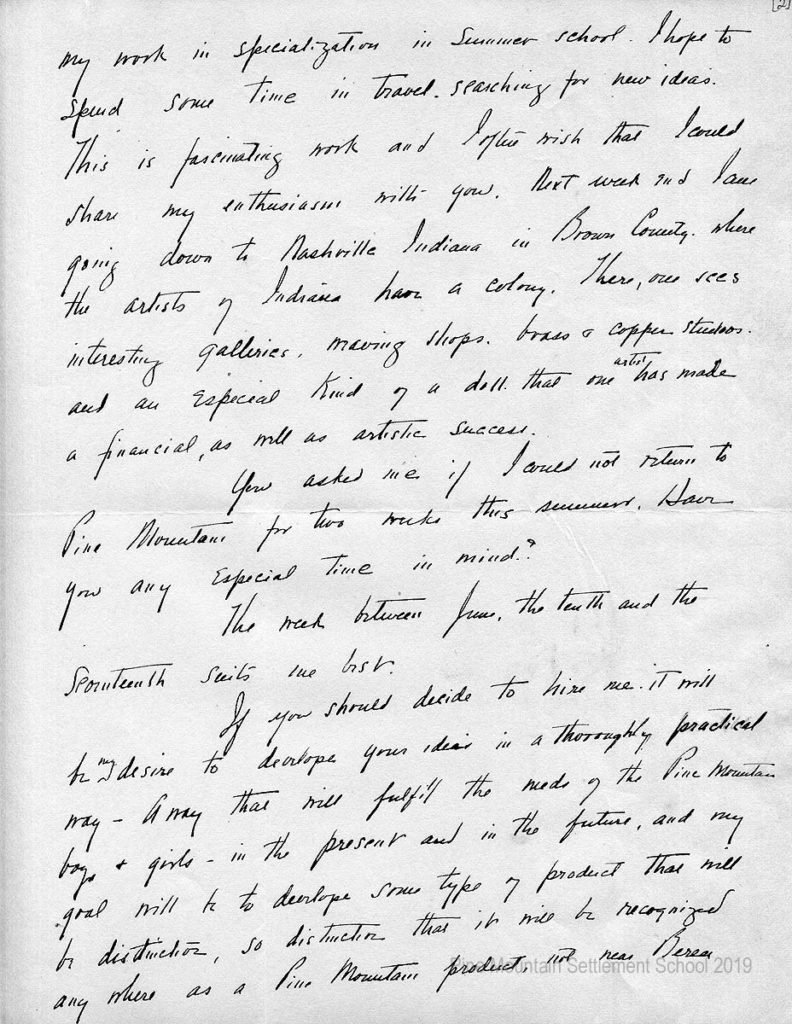 [2]
my work in specialization in Summer school. I hope to
spend some time in travel. searching for new ideas.
This is fascinating work and I often wish that I could
share my enthusiasm with you. Next week end I am
going down to Nashville Indiana in Brown County. where
the artists of Indiana have a colony. There, one sees
interesting galleries. weaving shops. brass & copper studios.
and an Especial Kind of a doll. that one artist has made
a financial, as well as artistic success.
You asked me if I could not return to
Pine Mountain for two weeks this summer. Have
you any Especial time in mind?
The week between June, the tenth and the
Seventeenth suits me best.
If you should decide to hire me. it will
be my desire to develope your ideas in a thoroughly practical
way - A way that will fulfill the needs of the Pine Mountain
boys & girls - in the present and in the future, and my
goal will be to develope some type of product that will
be distinctive, so distinctive that it will be recognized
any where as a Pine Mountain product, not near Berea
Pine Mountain Settlement School 2019